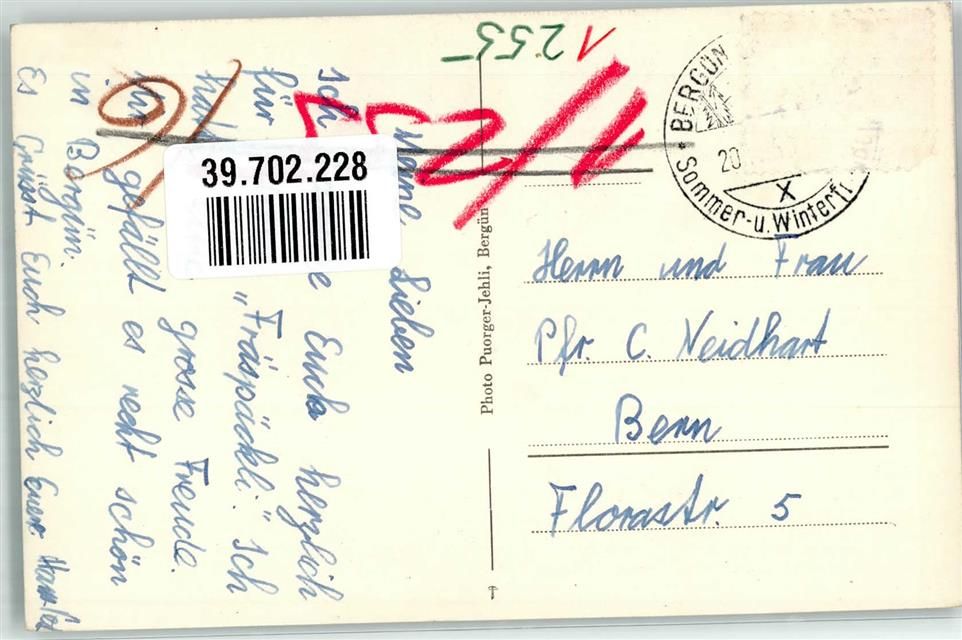 Meine Lieben
Ich Euch herzlich
für „Fräspäckli." Ich
grosse Freude.
gefällt es recht schön
in Bergün.
Es Grüsst Euch herzlich Euer
39.702.228
1253-
Photo Puorger-Jehli, Bergün
BERGÜN
20
Sommer-u. Winter
X
Herrn und Frau
Pfr. C. Neidhart
Bern
Florastr. 5